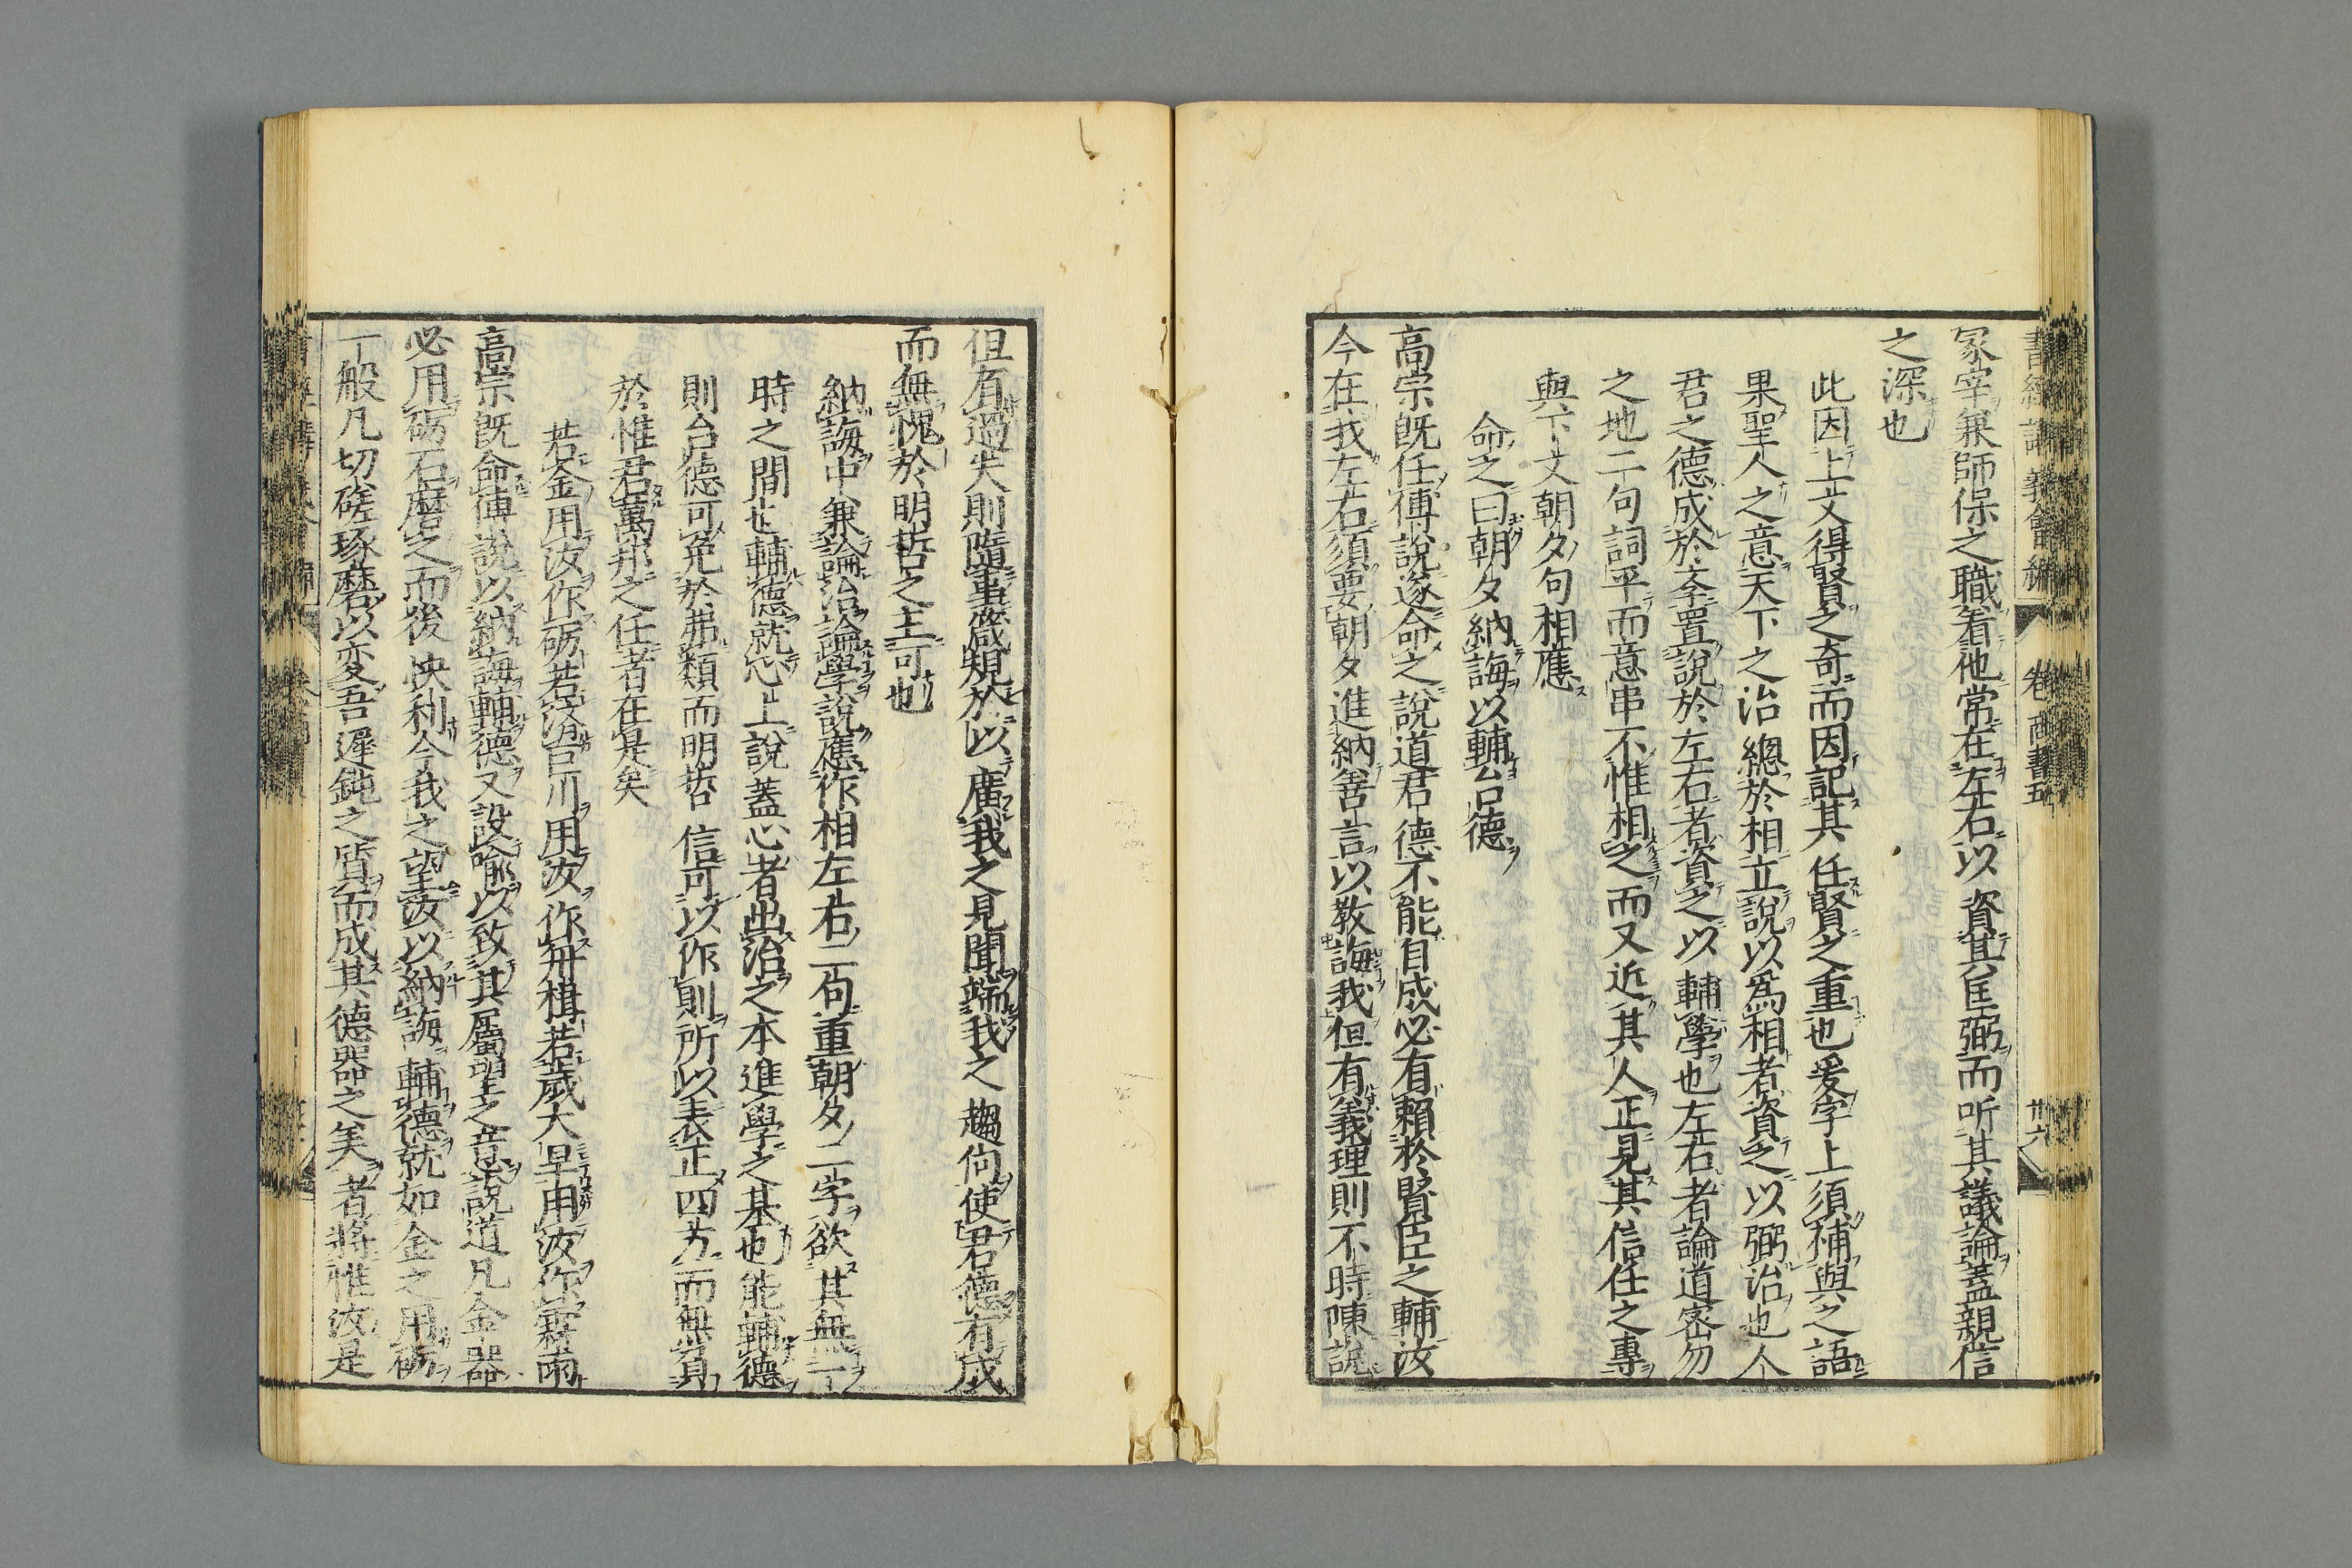 冡宰兼師保之職着他常在左右以資其匡弼而听其議論蓋親信
之深也
此因上文得賢之奇而因記其任賢之重也爰字上須補與之語
果聖人之意天下之治總於相立說以爲相者資之以弼治也人
君之德成於李置說於左右者資之以輔學也左右者論道密勿
之地二句詞平而意串不惟相之而又近其人正見其信任之專
與下文朝夕句相應
命之曰朝夕納誨以輔台德
高宗旣任傅說遂命之說道君德不能自成必有賴於賢臣之輔汝
今在我左右須要朝夕進納善言以教誨我但有義理則不時陳說
但有過失則隨事箴規於以廣我之見聞端我之趨向使君德有成
而無愧於明哲之主可也
納誨中兼論治論學說應作相左右二句重朝夕二字欲其無一
時之間也輔德就心上說蓋心者出治之本進學之基也能輔德
則台德可免於弗類而明哲信可以作則所以表正四方而無負
於惟君萬邦之任者在是矣
若金用汝作砺若濟巨川用汝作舟楫若歲大旱用汝作霖雨
高宗旣命傅說以納誨輔德又設喻以致其屬望之意說道凡金器
必用砺石磨之而後快利今我之望汝以納誨輔德就如金之用砺
一般凡切磋琢磨以変吾遲鈍之質而成其德器之美者將惟汝是
書經講義會編
卷商書五
廿六